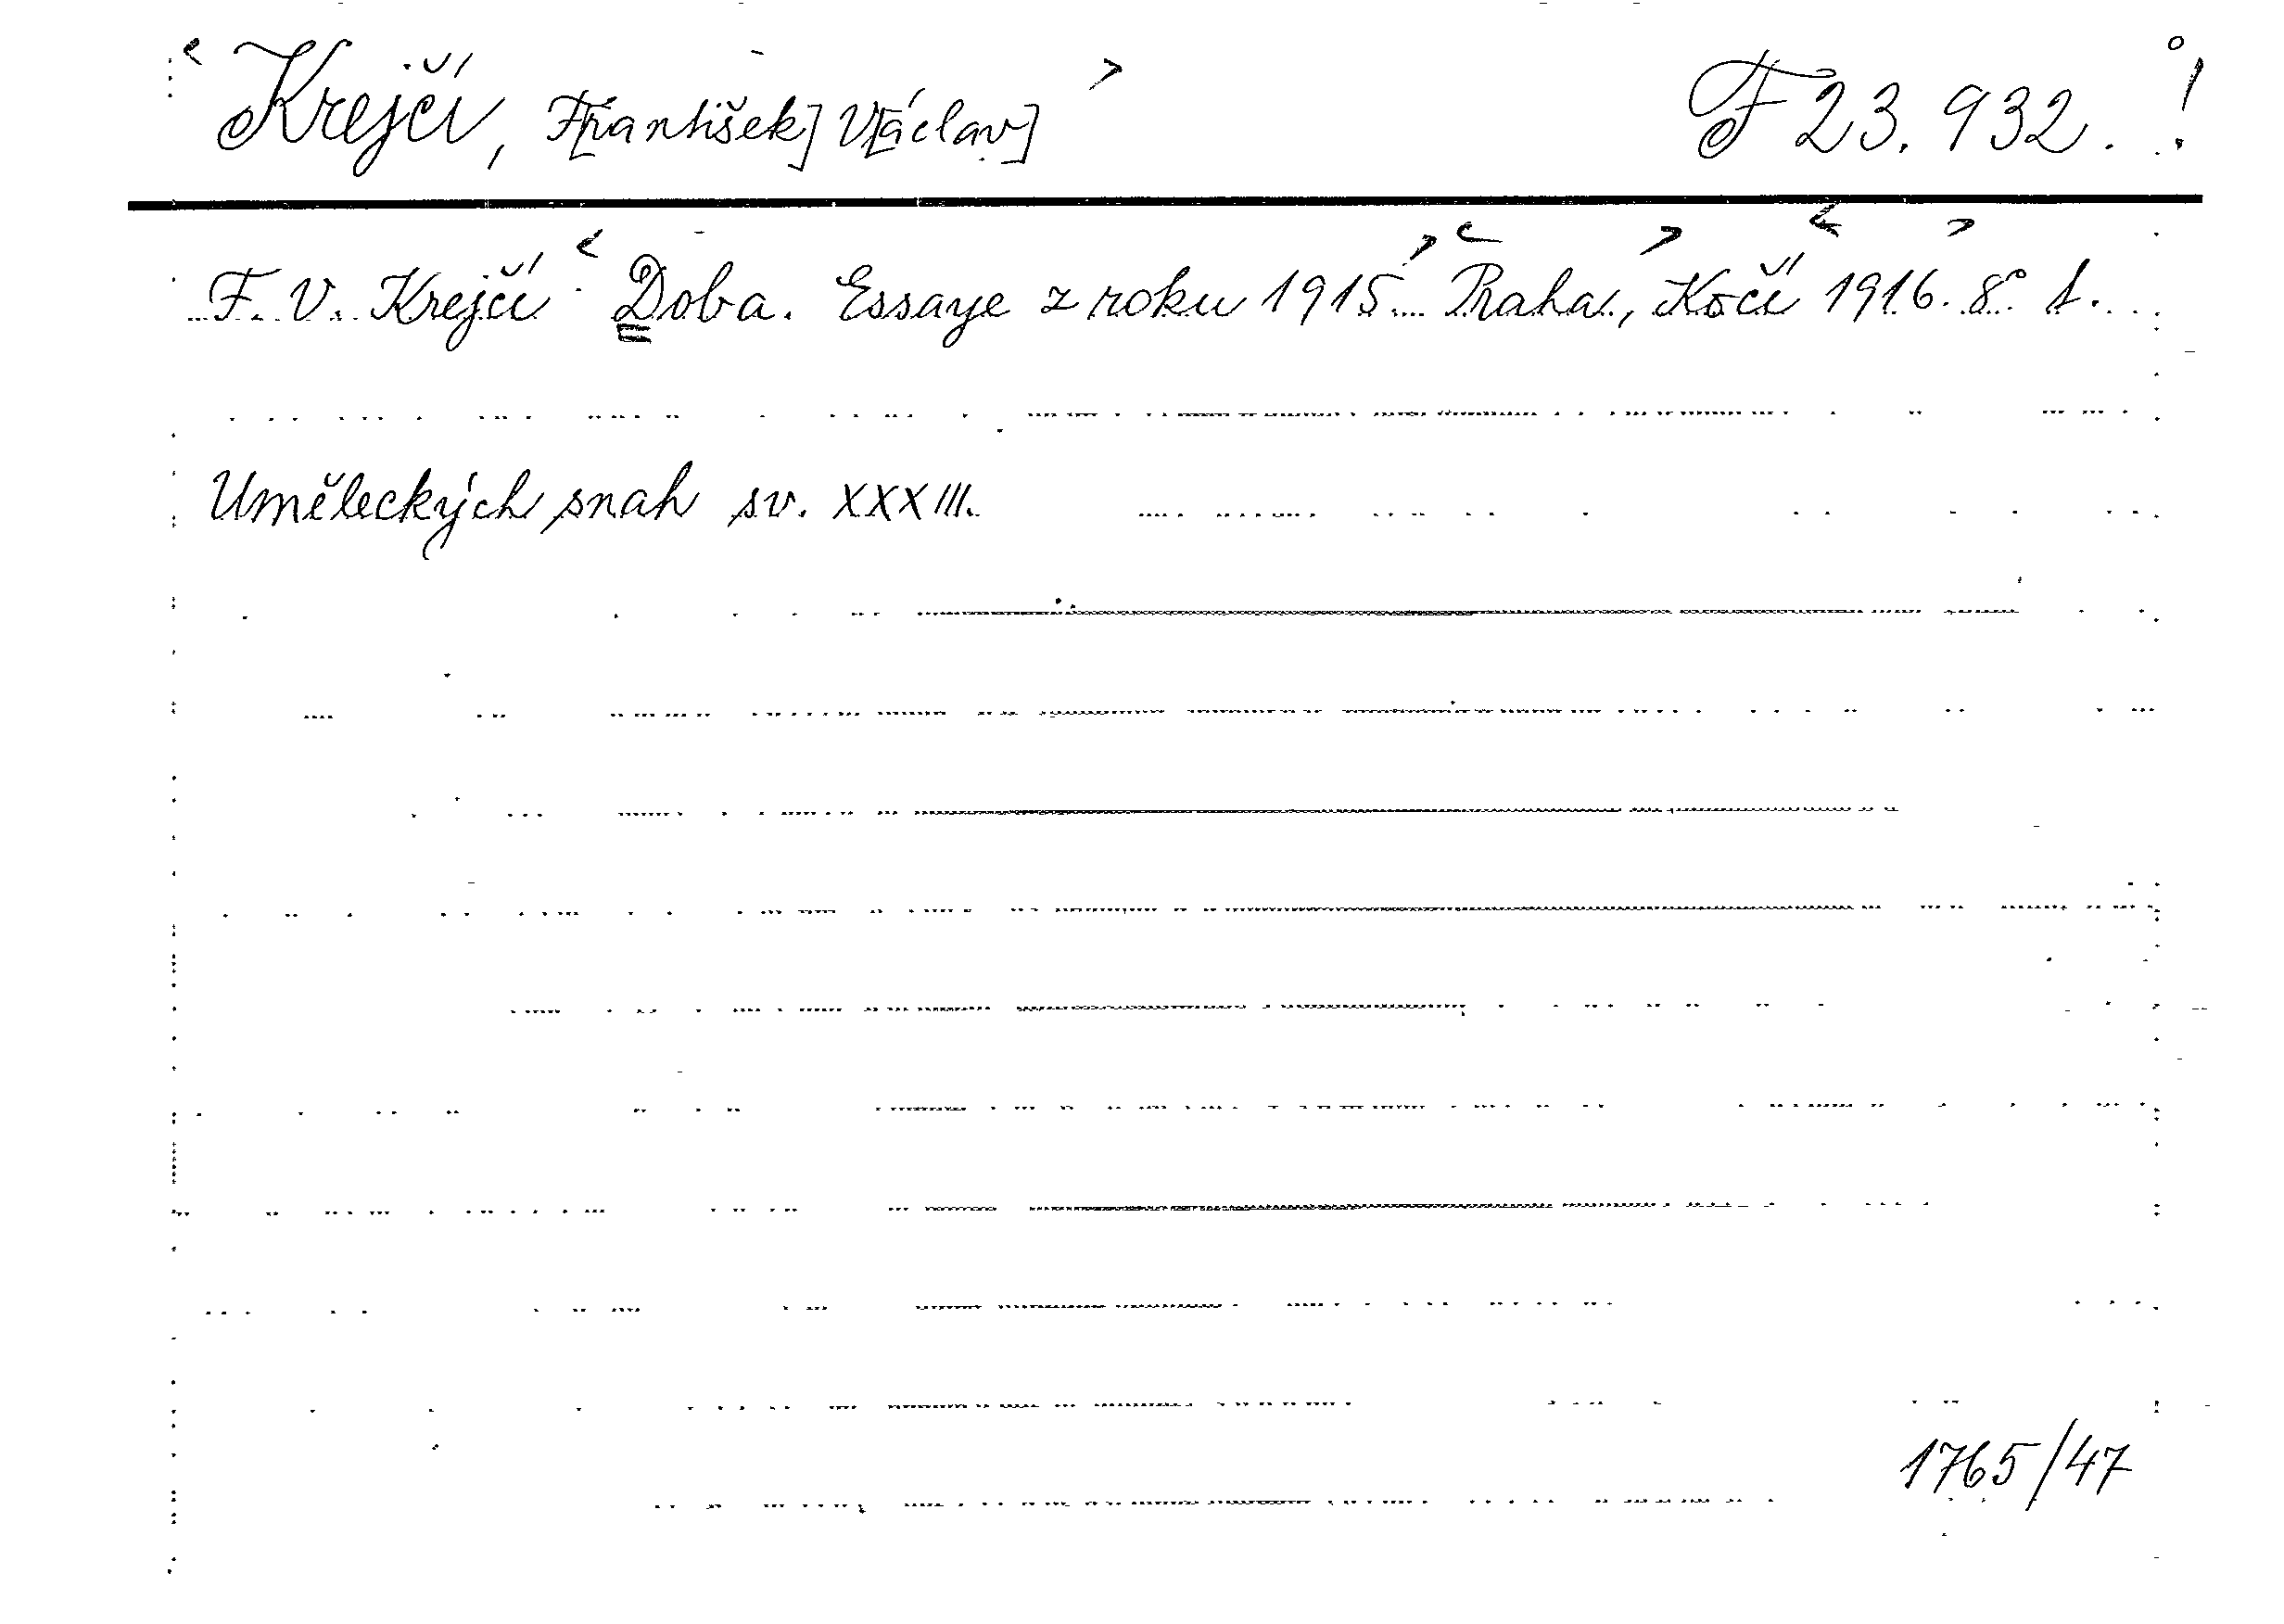 < Krejčí, F[rantišek] V[áclav] > F 23.932. !
F. V. Krejčí < Doba. Essaye z roku 1915. > < Praha, Kočí > < 1916. > 8° 1.
Uměleckých snah sv. XXXIII.
1765/47